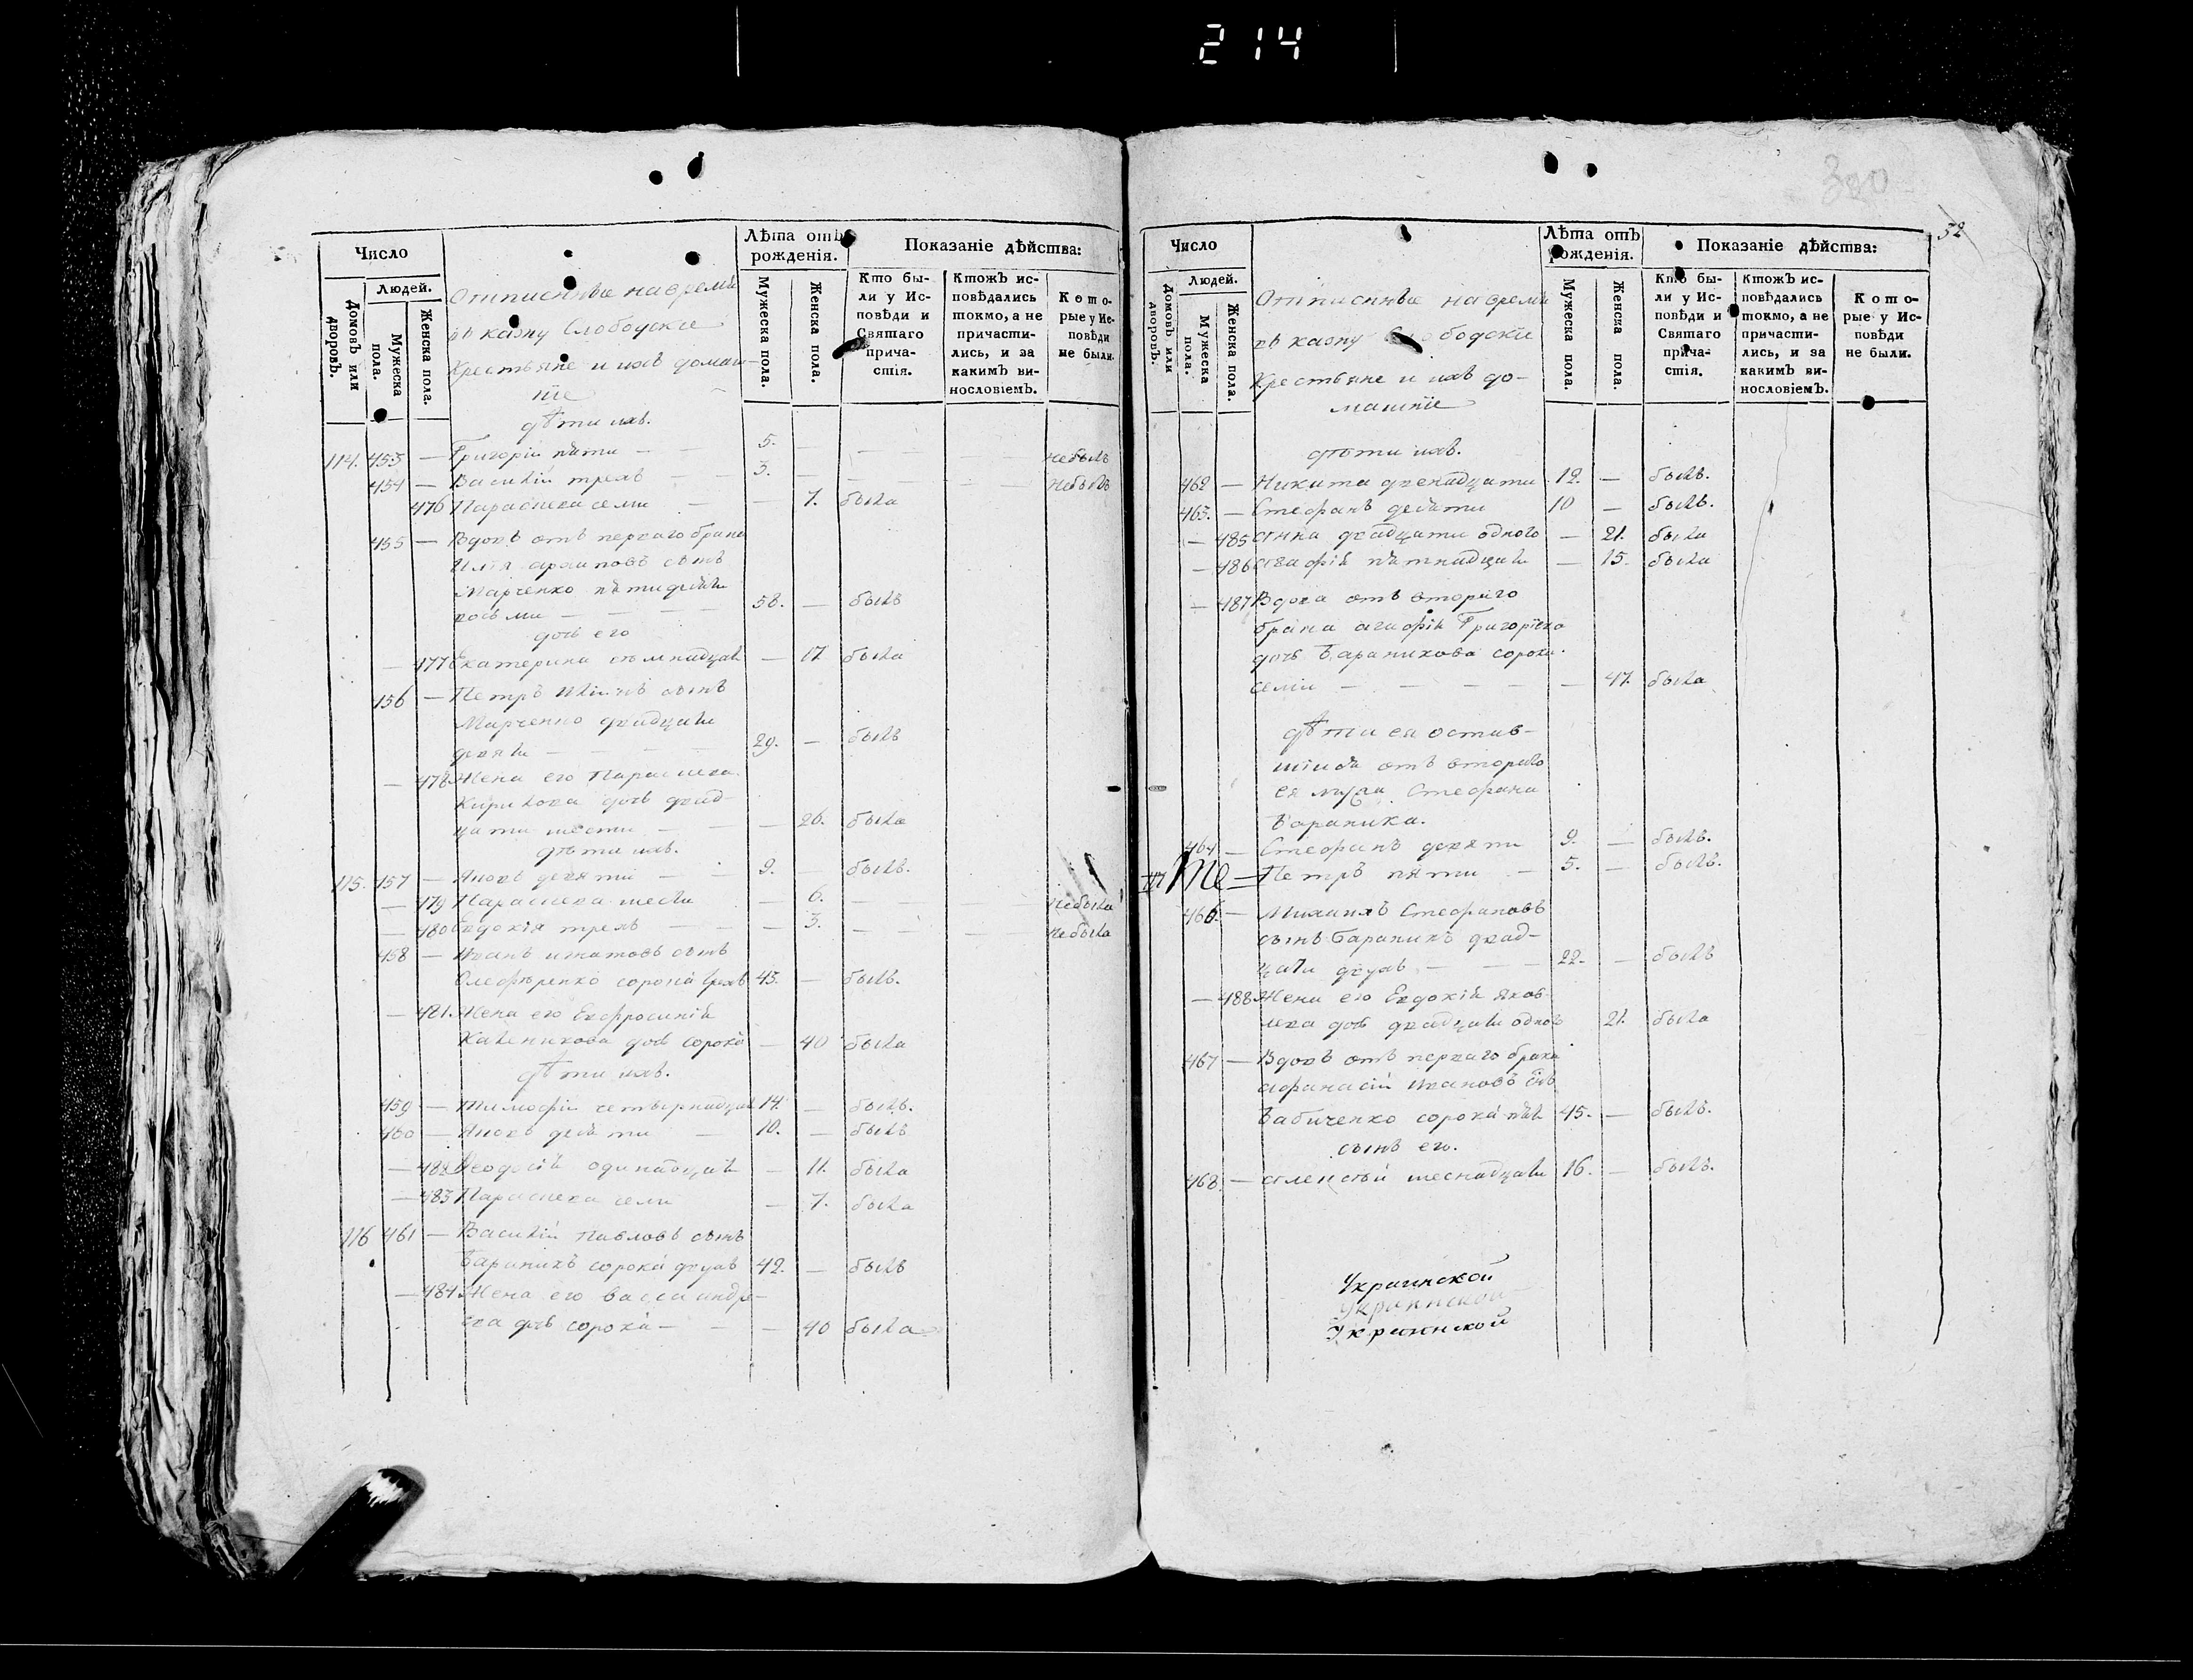 214
Число
Людей.
Домовъ или дворовъ.
Мужеска пола.
Женска пола.
Отписнные на время
въ казну Слободскіе
Крестьяне и ихъ домаш-
ніе
Лѣта отъ рожденія.
Мужеска пола.
Женска пола.
Показаніе дѣйства:
Кто бы-
ли у Ис-
повѣди и
Святаго
прича-
стія.
Ктожъ ис-
повѣдались
токмо, а не
причасти-
лись, и за
какимъ ви-
нословіемъ.
Кото-
рые у Ис-
повѣди
не были.
дѣти ихъ.
114. 453 — Григорій пяти — 5. — небылъ
454 — Василій трехъ — 3. — небылъ
476 Параскева семи — 7. была
455 — Вдовъ отъ перваго брака
Илія архиповъ сынъ
Марченко пятидесяти
восьми — 58. — былъ
дочь его
— 477 Екатерина семнадцати — 17. была
456 — Петръ Иліинъ сынъ
Марченко двадцати
девяти — 29. — былъ
— 478 Жена его Параскева
Кирилова дочь двад-
цати шести — 26. была
дѣти ихъ.
115. 457 — Яковъ девяти — 9. — былъ.
— 479 Параскева шести — 6. — небыла
— 480 Евдокія трехъ — 3. — небыла
458 — Иванъ игнатовъ сынъ
сорока трехъ 43. — былъ.
— 481. Жена его Евфросинія
дочь сорока — 40 была
дѣти ихъ.
459 — Тимофій четырнадцати 14. — былъ.
460 — Яковъ десяти — 10. — былъ
— 482 Феодосія одинадцати — 11. была
— 483 Параскева семи — 7. была
116 461 — Василій Павловъ сынъ
Бараникъ сорока двухъ 42. — былъ
— 484 Жена его васса андре-
ева дочь сорока — 40 была
300
52
Число
Людей.
Домовъ или дворовъ.
Мужеска пола.
Женска пола.
Отписнные на время
въ казну Слободскіе
Крестьяне и ихъ до-
машніе
Лѣта отъ рожденія.
Мужеска пола.
Женска пола.
Показаніе дѣйства:
Кто бы-
ли у Ис-
повѣди и
Святаго
прича-
стія.
Ктожъ ис-
повѣдались
токмо, а не
причасти-
лись, и за
какимъ ви-
нословіемъ.
Кото-
рые у Ис-
повѣди
не были.
дѣти ихъ.
462 — Никита двенадцати 12. — былъ.
463. — Стефанъ десяти 10 — былъ.
— 485 анна двадцати одного — 21. была
— 486 агафія пятнадцати — 15. была
— 487 Вдова отъ втораго
брака агафія Григоріева
дочь Бараникова сорока
семи — 47. была
дѣти ея остав-
шіися отъ втораго
ея мужа Стефана
Бараника.
464 — Стефанъ девяти 9. — былъ.
Петръ пяти — 5. — былъ.
466. — Михаилъ Стефановъ
сынъ Бараникъ двад-
цати двухъ — 22. — былъ
— 488 Жена его Евдокія яков-
лева дочь двадцати одного 21. была
467 — Вдовъ отъ перваго брака
афанасій Ивановъ снъ
Бабиченко сорока пяти 45. — былъ.
сынъ его.
468. — алексѣй шеснадцати 16. — былъ.
Украинской
Украинской
Украинской